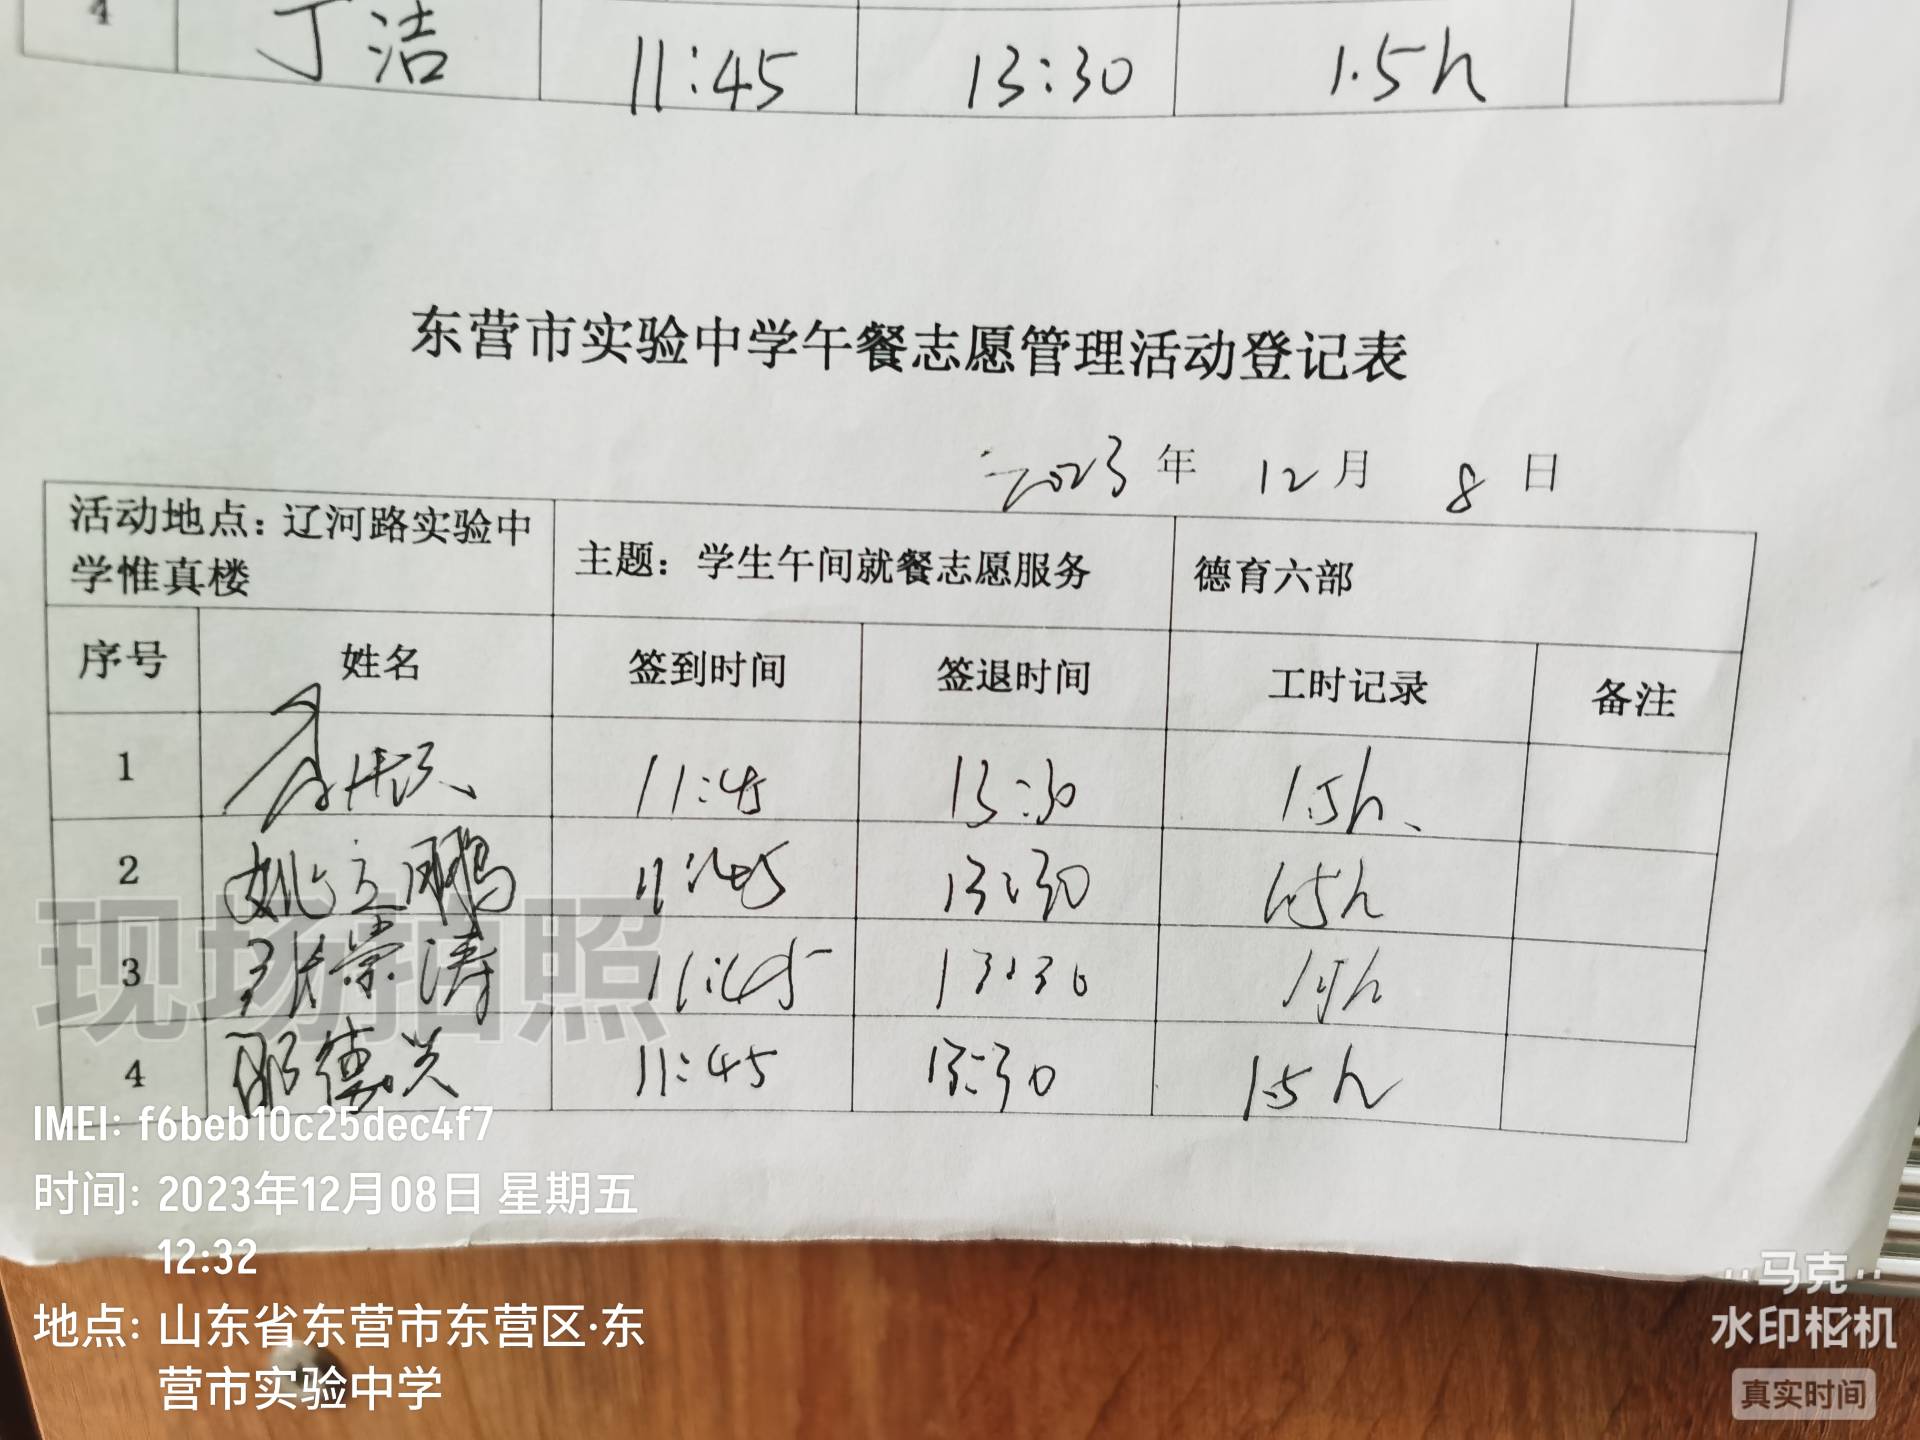 4 丁洁 11:45 13:30 1.5h
东营市实验中学午餐志愿管理活动登记表
2023年 12月 8日
活动地点：辽河路实验中学惟真楼 主题：学生午间就餐志愿服务 德育六部
序号 姓名 签到时间 签退时间 工时记录 备注
1 11:45 13:30 1.5h
2 姚立鹏 11:45 13:30 1.5h
3 张崇涛 11:45 13:30 1.5h
4 邵德兴 11:45 13:30 1.5h
现场拍照
IMEI: f6beb10c25dec4f7
时间: 2023年12月08日 星期五
12:32
地点: 山东省东营市东营区·东
营市实验中学
马克
水印相机
真实时间